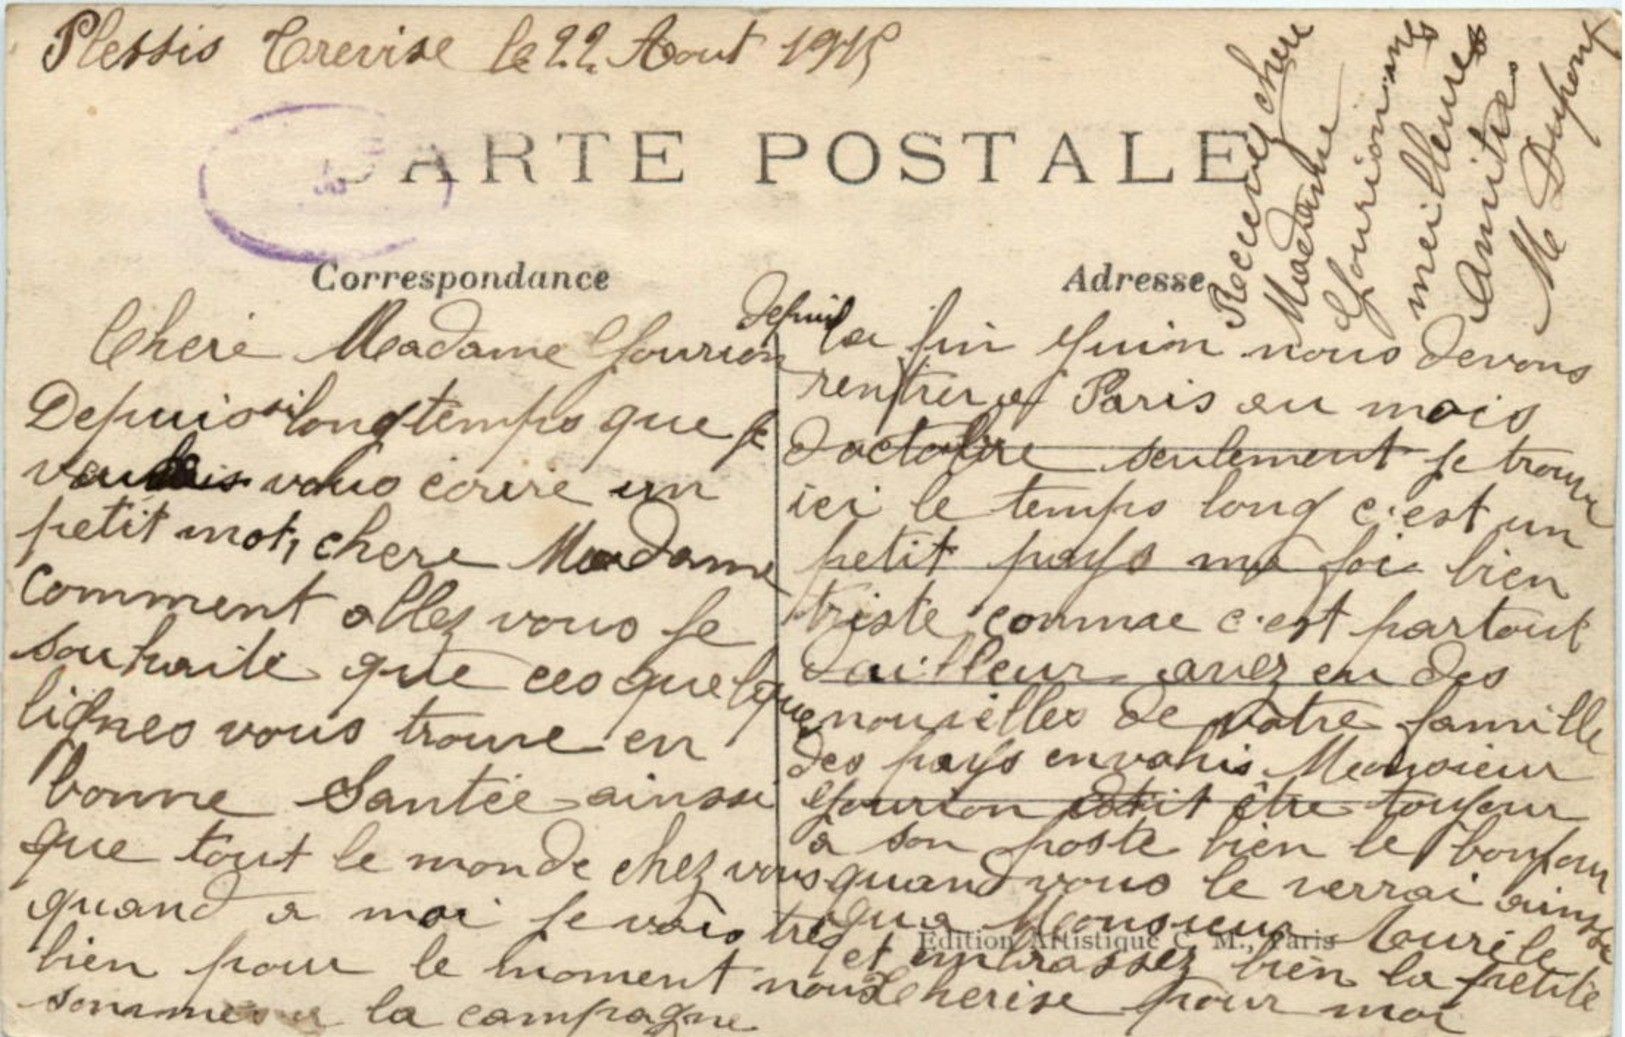 Plessis Trevise le 22 Aout 1915
CARTE POSTALE
Correspondance
Chere Madame Gourion
Depuis si longtemps que je
voulais vous écrire un
petit mot, chere Madame
comment allez vous je
souhaite que ces quelque
lignes vous trouve en
bonne Santée ainssi
que tout le monde chez vous
quand a moi je vais tres
bien pour le moment nous
sommes a la campagne
Adresse
depuis la fin Juin nous devons
rentrer a Paris au mois
d'octobre seulement je trouve
ici le temps long c'est un
petit pays ma foi bien
triste comme c'est partout
dailleur avez eu des
nouvelles de votre famille
des pays envahis Monsieur
Gourion doit être toujour
à son poste bien le bonjour
quand vous le verrai ainssi
qu'a Monsieur
et embrassez bien la petite
cherise pour moi
Edition Artistique C. M., Paris
Recevez chere
Madame
Gourion mes
meilleures
Amitiés
M Dupont